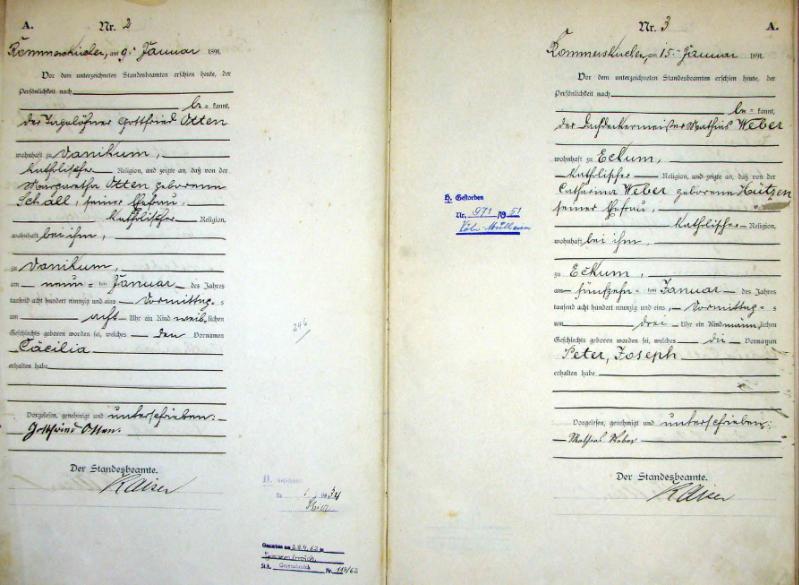 A.
Nr. 2
Kommerskirchen, am 9. Januar 1891.
Vor dem unterzeichneten Standesbeamten erschien heute, der
Persönlichkeit nach
be=kannt,
der Tagelöhner Gottfried Otten
wohnhaft zu Vanikum,
katholischer Religion, und zeigte an, daß von der
Margaretha Otten geborenen
Schall, seiner Ehefrau,
katholischer Religion,
wohnhaft bei ihm,
zu Vanikum,
am neun=ten Januar des Jahres
tausend acht hundert neunzig und eins Vormittag=s
um acht Uhr ein Kind weib=lichen
Geschlechts geboren worden sei, welches den Vornamen
Cäcilia
erhalten habe
Vorgelesen, genehmigt und unterschrieben:
Gottfried Otten.
Der Standesbeamte.
Kaiser
246
Nr. 3
A.
Kommerskirchen, am 15. Januar 1891.
Vor dem unterzeichneten Standesbeamten erschien heute, der
Persönlichkeit nach
be=kannt,
der Dachdeckermeister Mathias Weber
wohnhaft zu Eckum,
katholischer Religion, und zeigte an, daß von der
Catharina Weber geborene Hützen
seiner Ehefrau,
katholischer Religion,
wohnhaft bei ihm,
zu Eckum,
am fünfzehn=ten Januar des Jahres
tausend acht hundert neunzig und eins, Vormittag=s
um drei Uhr ein Kind männ=lichen
Geschlechts geboren worden sei, welches die Vornamen
Peter, Joseph
erhalten habe
Vorgelesen, genehmigt und unterschrieben:
Mathias Weber
Der Standesbeamte.
Kaiser
Gestorben
Nr.
Nr.